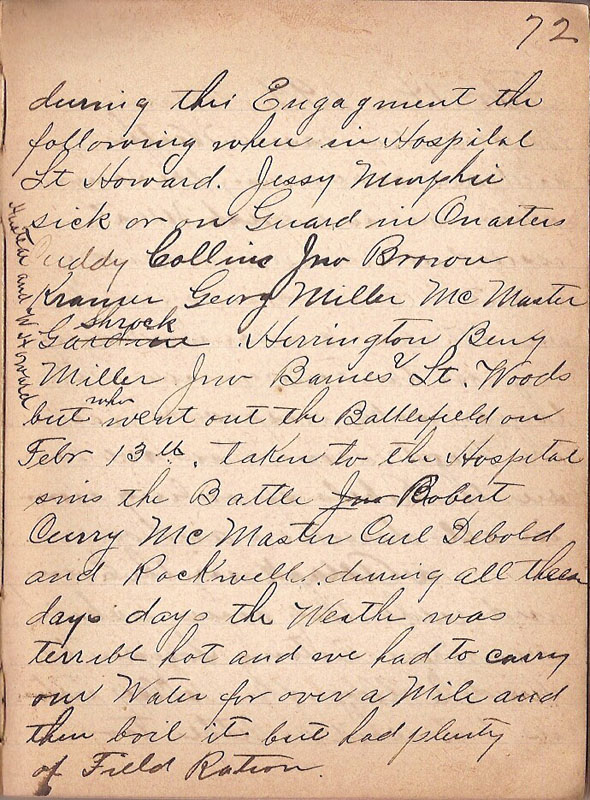 72
during thi Engagment the
following when in Hospital
Lt Howard. Jessy Murphie
sick or on Guard in Quarters
Cuddy Collins Jno Brown
Kramer Georg Miller Mc Master
shrock
Herrington Beny
Miller Jno Barnes & Lt. Woods
who
but went out the Battlefield on
Febr 13th. taken to the Hospital
sins the Battle Jno Robert
Curry Mc Master Carl Debold
and Rockwell. during all these
days days the Weathe was
terrible hot and we had to carry
our Water for over a Mile and
then boil it but had plenty
of Field Ration.
and W Howard